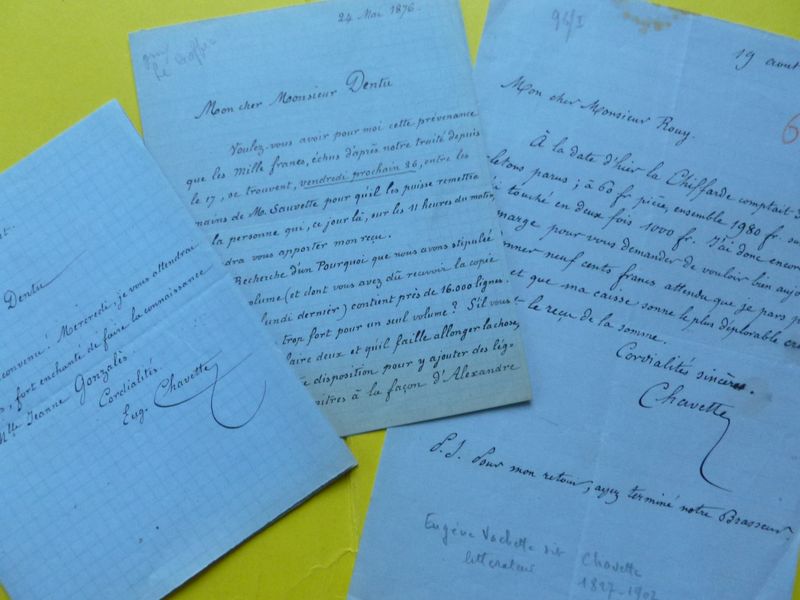 st.
Dentu
convenu! Mercredi, je vous attendrai
, fort enchanté de faire la connaissance
Mlle Jeanne Gonzalès.
Cordialités.
Eug. Chavette
24 Mai 1876.
Mon cher Monsieur Dentu
Voulez-vous avoir pour moi cette prévenance
que les Mille francs, échus d'après notre traité depuis
le 17, se trouvent, vendredi prochain 26, entre les
mains de M. Sauvette pour qu'il les puisse remettre
la personne qui, ce jour là, sur les 11 heures du matin
dra vous apporter mon reçu.
Recherche d'un Pourquoi que nous avons stipulée
olume (et dont vous avez dû recevoir la copie
lundi dernier) contient près de 16.000 lignes.
trop fort pour un seul volume? S'il vous
faire deux et qu'il faille allonger la chose,
e disposition pour y ajouter des lig-
pitres à la façon d'Alexandre
94/I
19 aout
6
Mon cher Monsieur Rouy.
À la date d'hier la Chiffarde comptait
lletons parus; à 60 fr pièce, ensemble 1980 fr. sur
i touché en deux fois 1000 fr. J'ai donc encore
marge pour vous demander de vouloir bien aujou
nner neuf cents francs attendu que je pars
et que ma caisse sonne le plus déplorable
t le reçu de la somme.
Cordialités sincères.
Chavette
P.S. Pour mon retour, ayez terminé notre Brasseur.
Eugène Vachette dit Chavette
littérateur 1827-1902